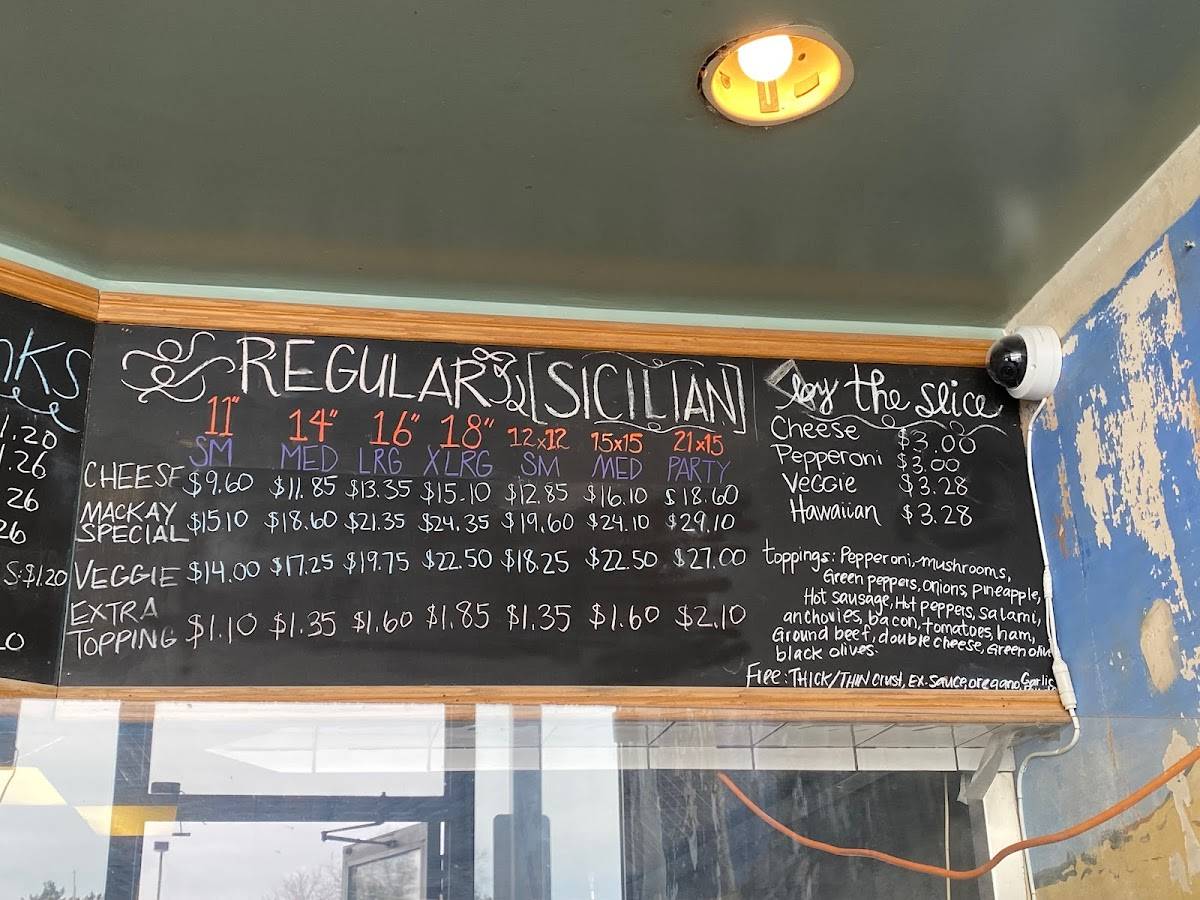 1.20
.26
26
26
S:$1.20
REGULAR [SICILIAN]
11" 14" 16" 18" 12x12 15x15 21x15
SM MED LRG XLRG SM MED PARTY
CHEESE $9.60 $11.85 $13.35 $15.10 $12.85 $16.10 $18.60
MACKAY
SPECIAL $15.10 $18.60 $21.35 $24.35 $19.60 $24.10 $29.10
VEGGIE $14.00 $17.25 $19.75 $22.50 $18.25 $22.50 $27.00
EXTRA
TOPPING $1.10 $1.35 $1.60 $1.85 $1.35 $1.60 $2.10
by the slice
Cheese $3.00
Pepperoni $3.00
Veggie $3.28
Hawaiian $3.28
toppings: Pepperoni, mushrooms,
Green peppers, onions, pineapple,
Hot sausage, Hot peppers, salami,
anchovies, bacon, tomatoes, ham,
Ground beef, double cheese, Green oliv
black olives.
Free: THICK/THIN crust, Ex. sauce, oregano, Garlic